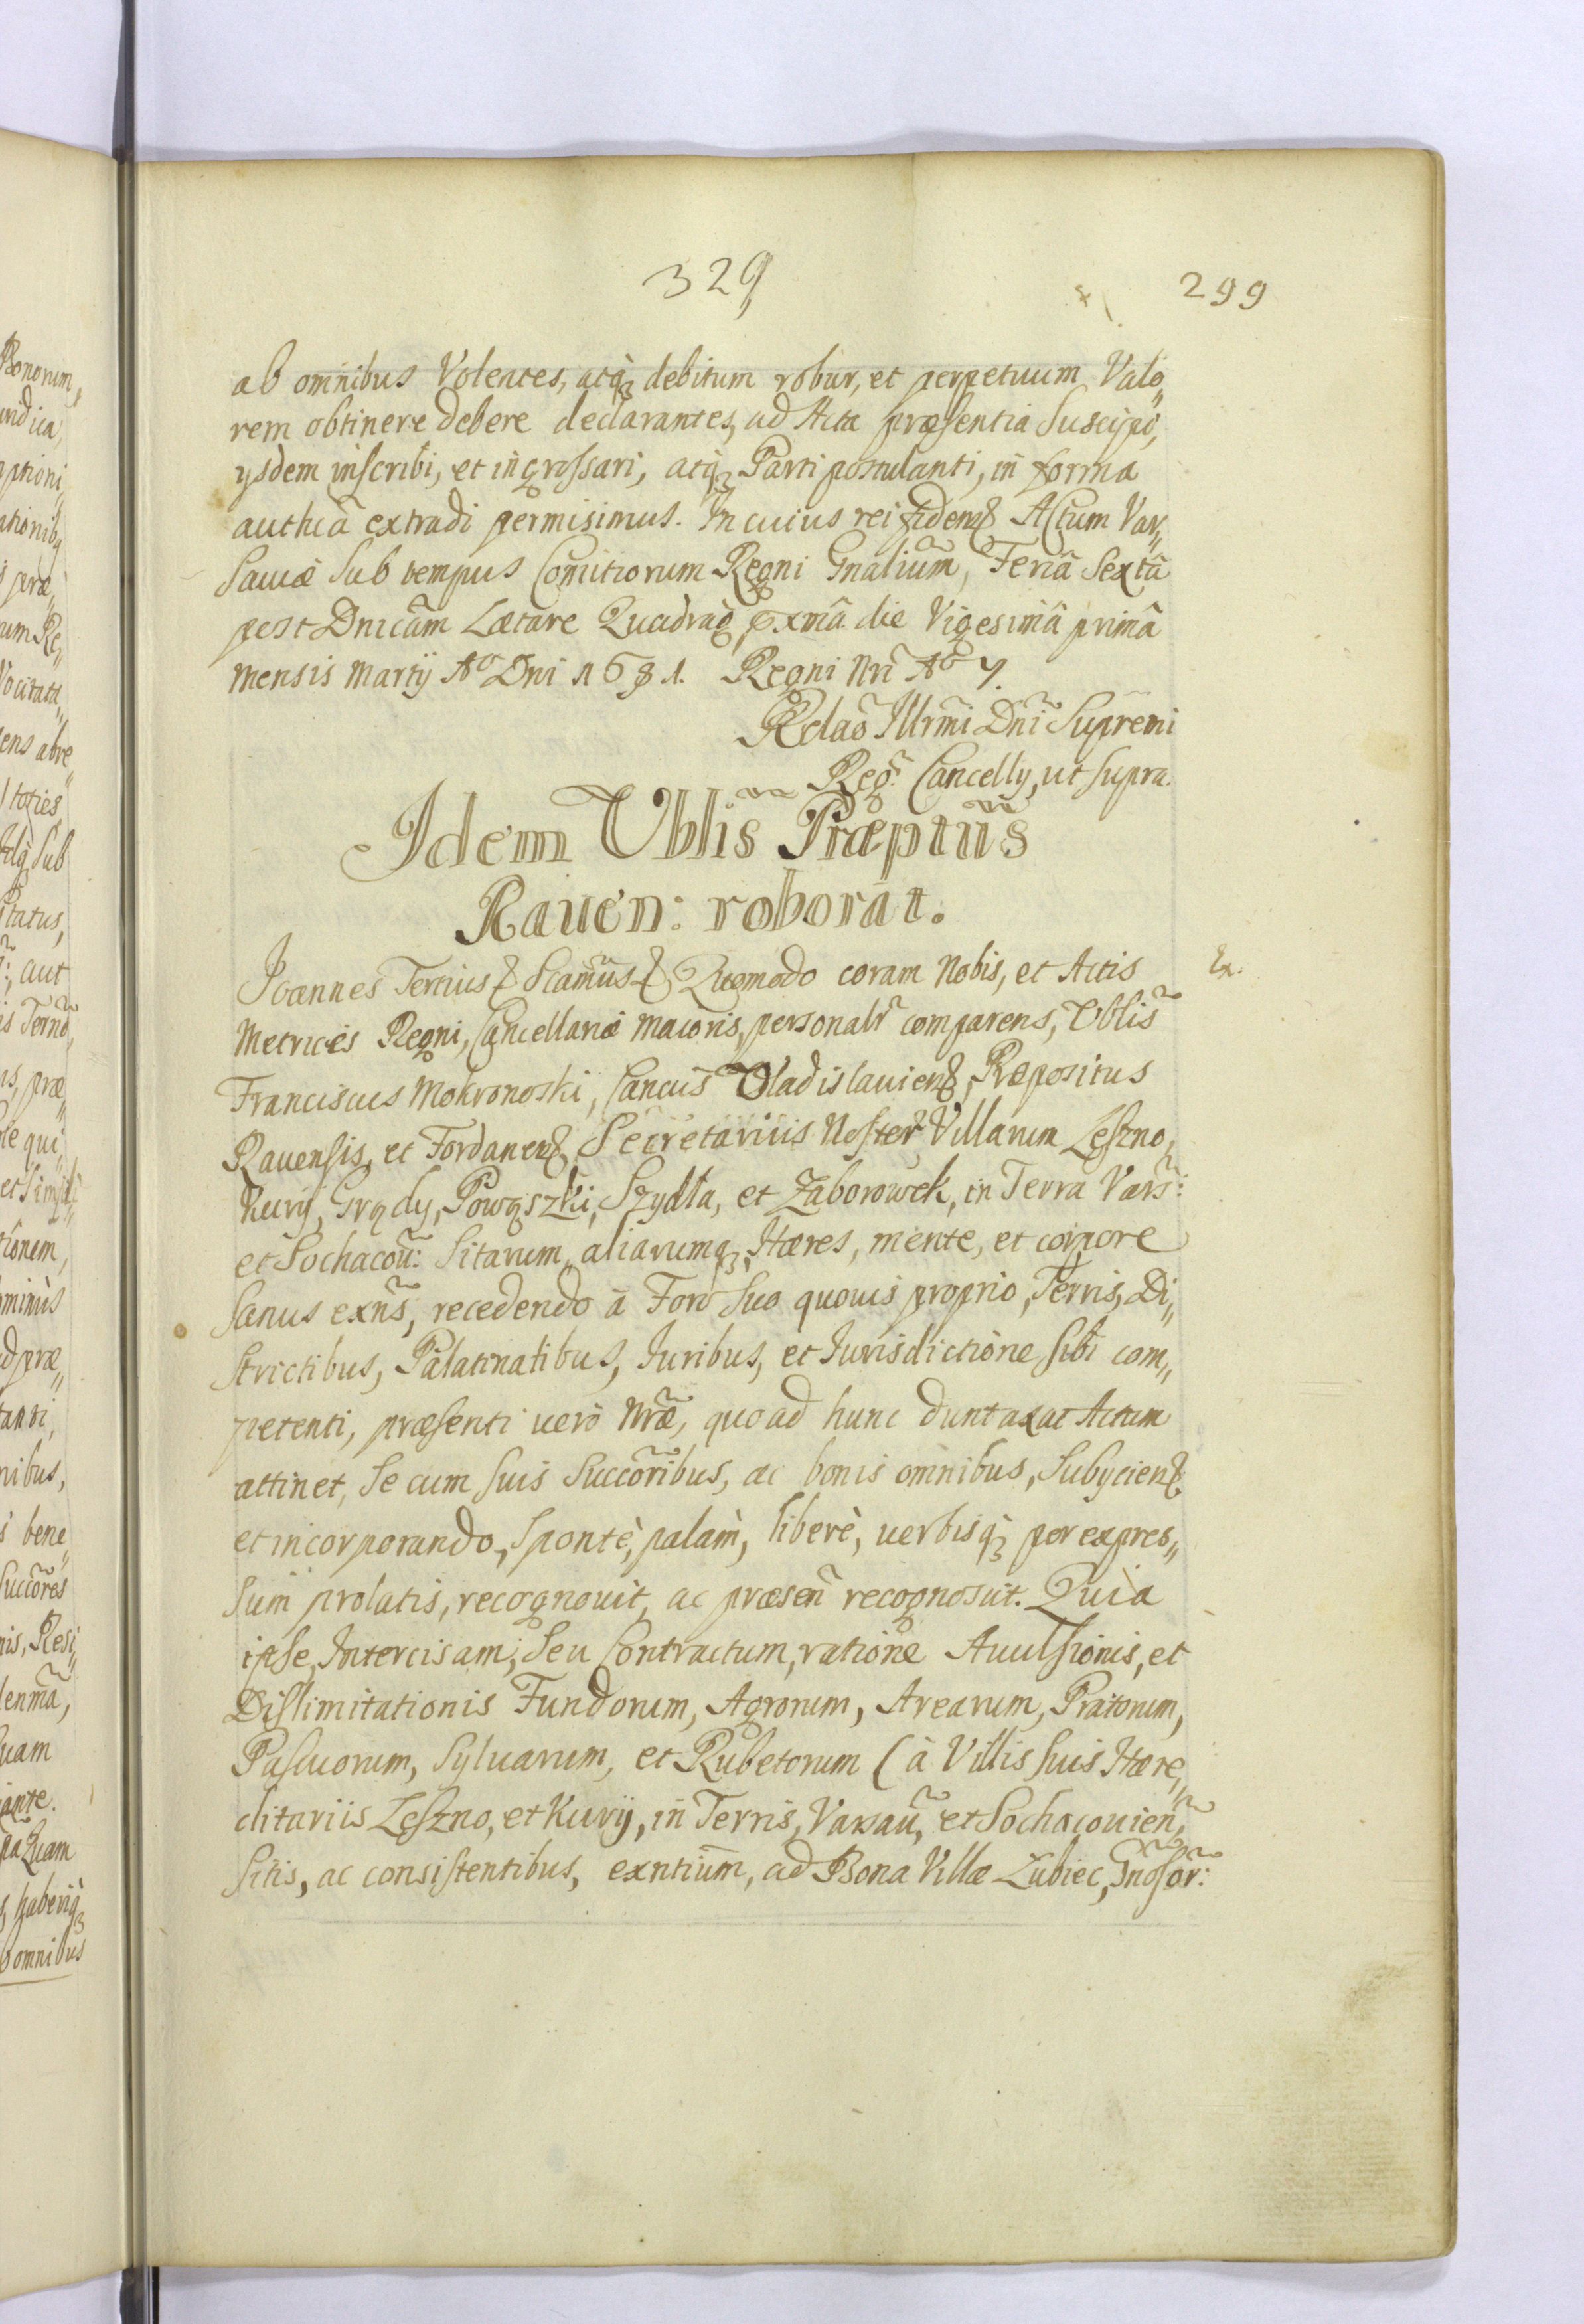 329
299
ab omnibus Volentes, atq̃ debitum robur, et perpetuum Valo„
rem obtinere debere declarantes, ad Acta præsentia Suscipi,
ysdem inscribi, et ingrossari, atq̃ Parti postulanti, in forma
authcâ extradi permisimus. In cuius rei fidem Actum Var„
Sauiæ Sub tempus Comitiorum Regni Gnãlium, Feria Sextâ
post Dnicãm Lætare Quadrag̃ pxmâ die Vigesimâ primâ
mensis Martij Aº Dni 1681. Regni Nrĩ Aº 7.
Relaõ Illrmĩ Dnĩ Supremi
Regñ: Cancellÿ, ut supra.
Idem Vblĩs Præptũs
Rauen: roborat.
Ex.
Joannes Tertius Scamũs Quomodo coram Nobis, et Actis
Metrices Regni, Cancellariæ maioris, personalr̃ comparens, Vblĩs
Franciscus Mokronoski, Cancũs Vladislauien, Præpositus
Rauensis, et Fordanen, Secretarius Noster Villarum Leszno,
Kurÿ, Grądy, Powązki, Szydła, et Zaborowek, in Terra Vars̃:
et Sochacoũ: Sitarum, aliarumq, Hæres, mente, et corpore
sanus exñs, recedendo à Foro Suo quouis proprio, Terris, Di„
strictibus, Palatinatibus, Iuribus, et Iurisdictione sibi com„
petenti, præsenti uerò Nræ̃, quoad hunc duntaxat Actum
attinet, Se cum suis Succõribus, ac bonis omnibus, Subÿcien
et incorporando, Spontè, palàm, liberè, uerbisq̀ per expres„
sum prolatis, recognouit, ac præseñ recognoscit. Quia
ipse, Intercisam, Seu Contractum, ratione Auulsionis, et
Dislimitationis Fundorum, Agrorum, Arearum, Pratorum,
Pascuorum, Syluarum, et Rubetorum (à Villis suis Hære„
ditariis Leszno, et Kurÿ, in Terris, Varsaũ, et Sochacouieñ,
Sitis, ac consistentibus, exntium, ad Bona Villæ Łubiec, Gnõsor̃: